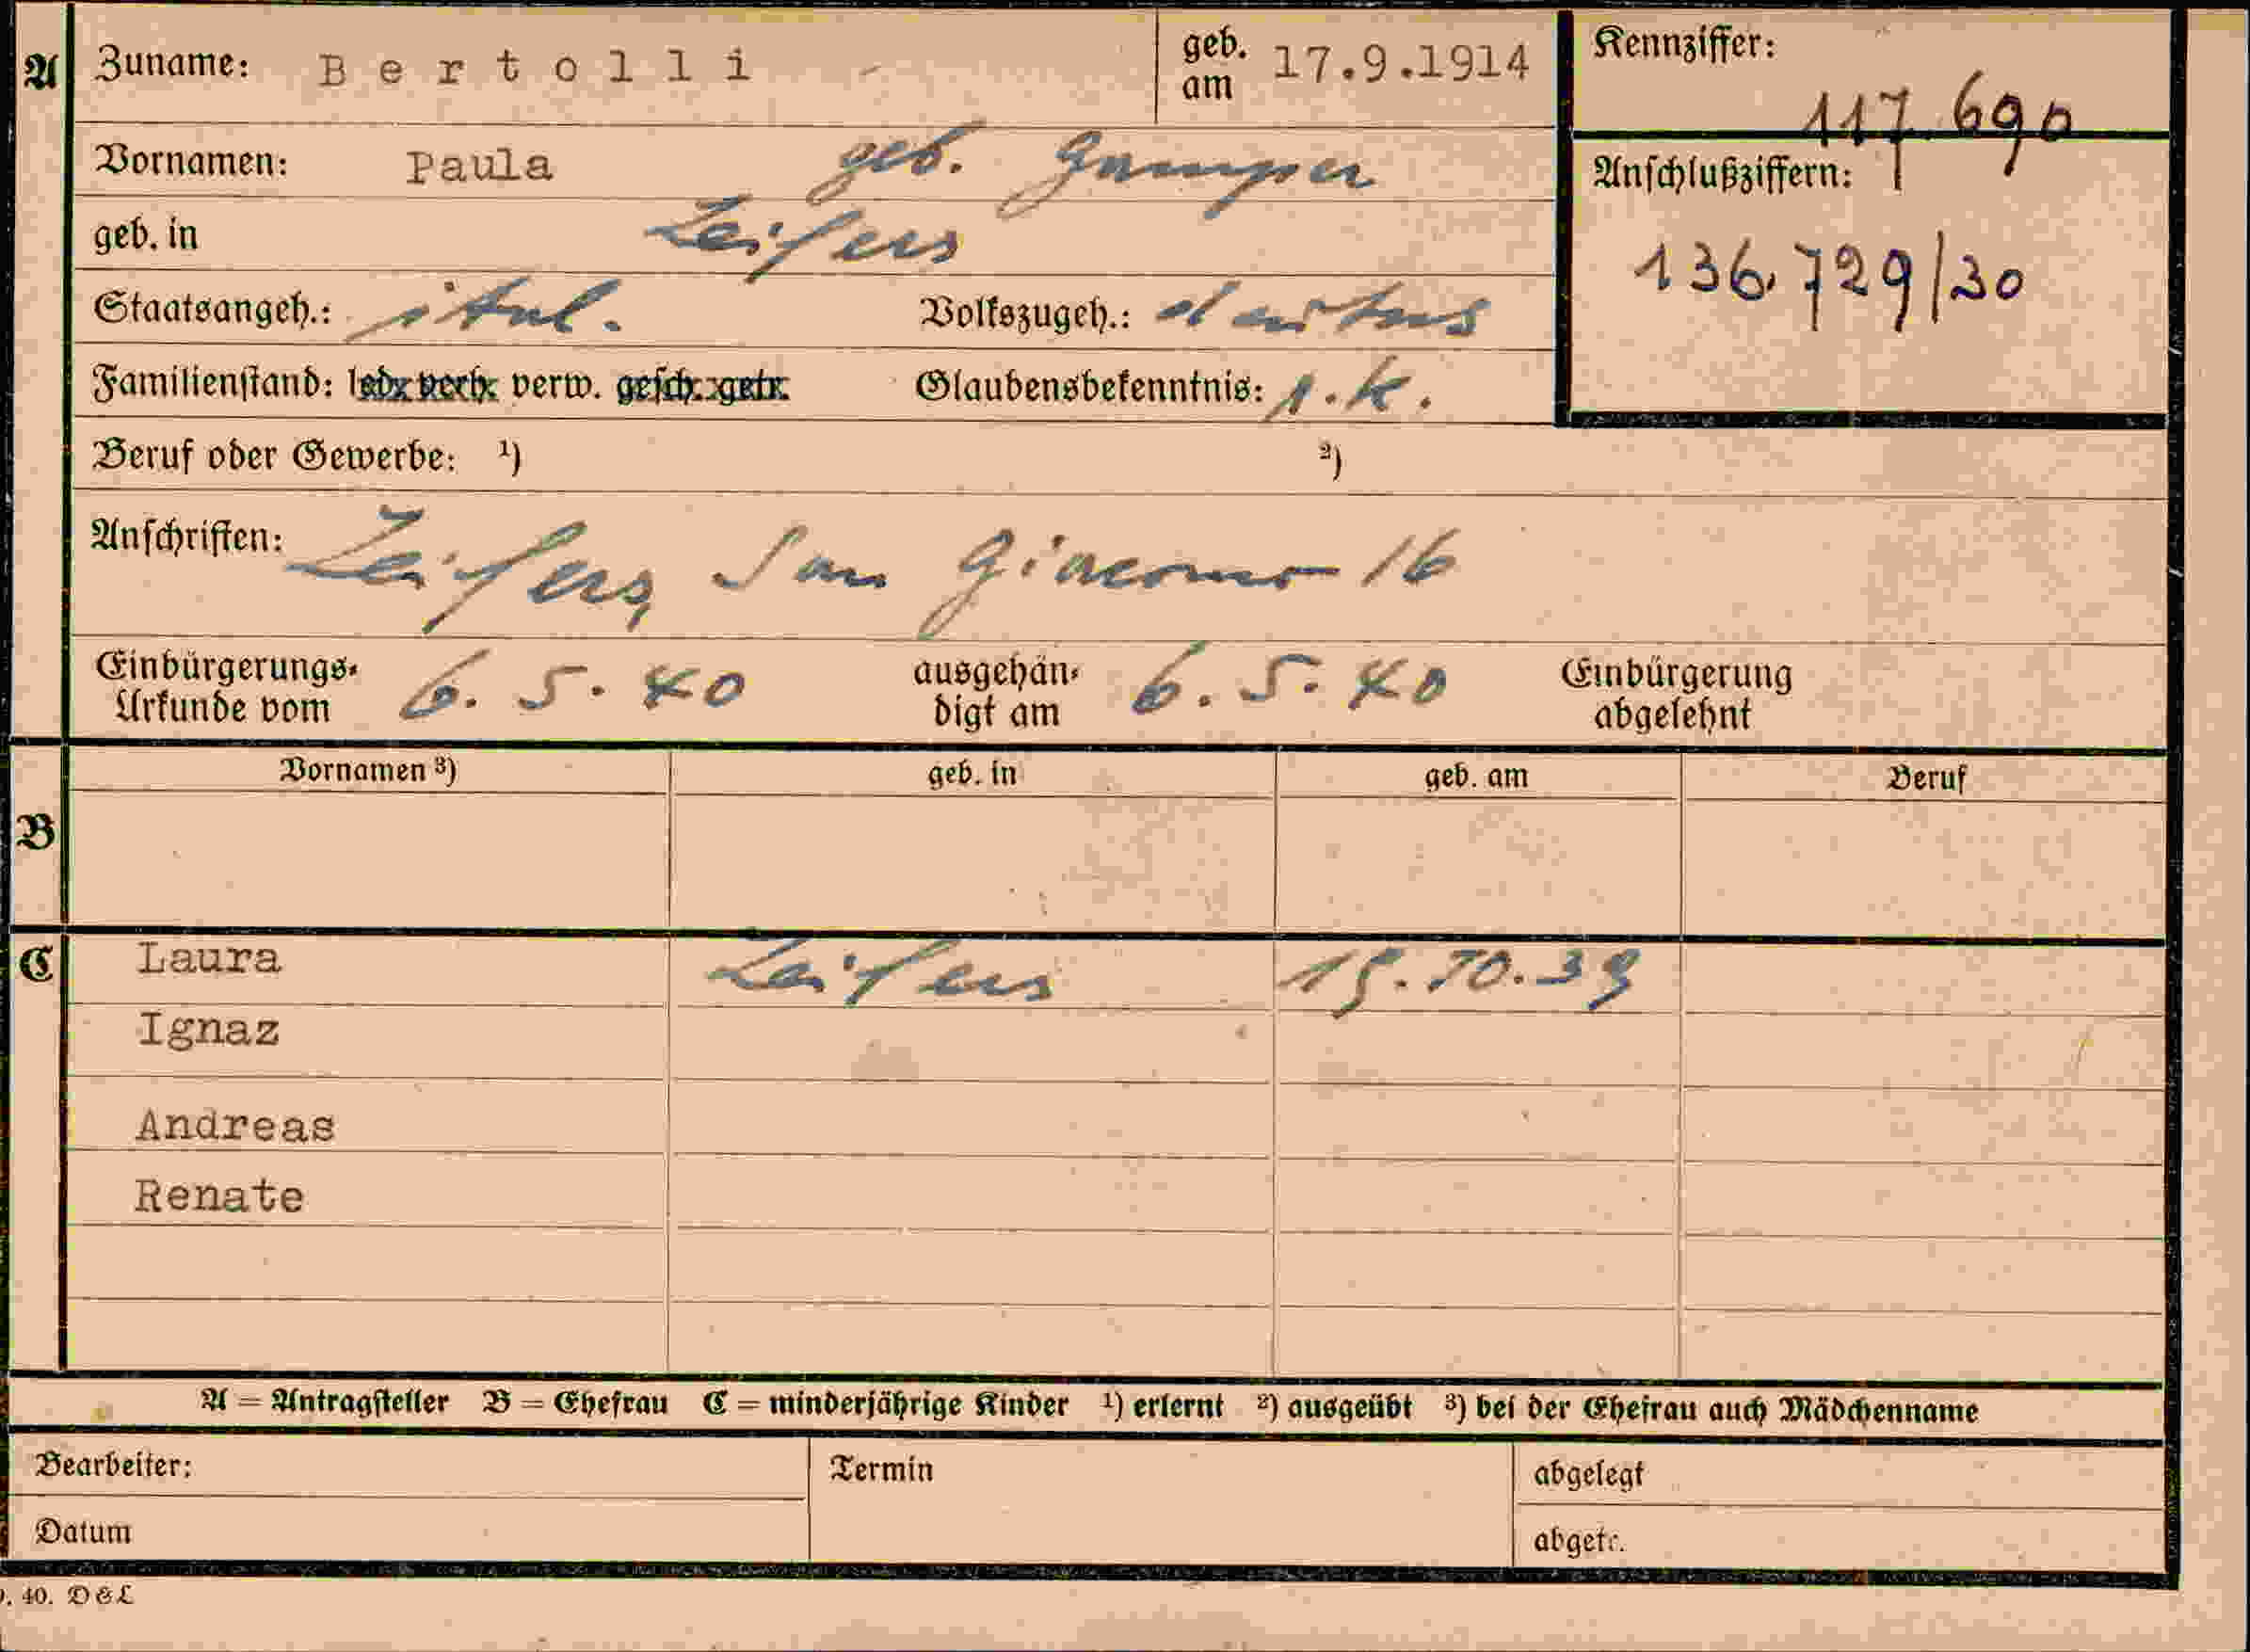 A Zuname: Bertolli geb. am 17.9.1914 Kennziffer:
117.690
Vornamen: Paula geb. Gamper Anschlußziffern:
geb. in Leifers 136.729/30
Staatsangeh.: ital. Volkszugeh.: deutsch
Familienstand: led. verh. verw. gesch. getr. Glaubensbekenntnis: r.k.
Beruf oder Gewerbe: ¹) ²)
Anschriften: Leifers, San Giacomo 16
Einbürgerungs-Urkunde vom 6.5.40 ausgehändigt am 6.5.40 Einbürgerung abgelehnt
Vornamen ³) geb. in geb. am Beruf
B
C Laura Leifers 15.10.39
Ignaz
Andreas
Renate
A = Antragsteller B = Ehefrau C = minderjährige Kinder ¹) erlernt ²) ausgeübt ³) bei der Ehefrau auch Mädchenname
Bearbeiter: Termin abgelegt
Datum abgetr.
. 40. D&L